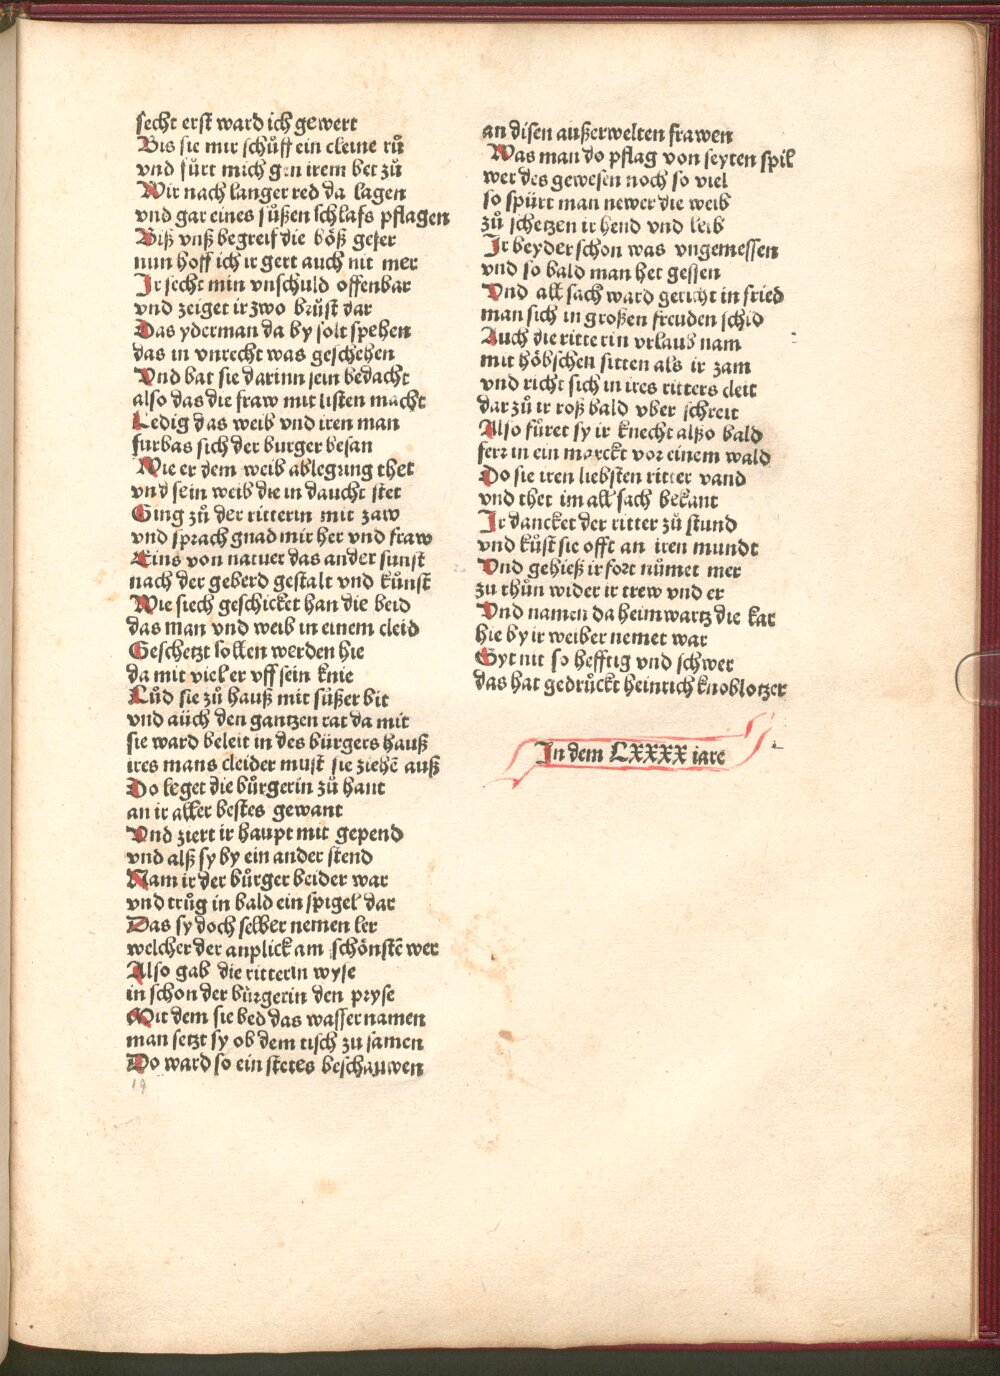 secht erst ward ich gewert
Bis sie mir schůff ein cleine rů
vnd fůrt mich gen irem bet zů
Wir nach langer red da lagen
vnd gar eines sůßen schlafs pflagen
Biß vnß begreif die bőß gefer
nun hoff ich ir gert auch nit mer
Ir secht min vnschuld offenbar
vnd zeiget ir zwo brůst dar
Das yderman da by solt spehen
das in vnrecht was geschehen
Vnd bat sie darinn sein bedacht
also das die fraw mit listen macht
Ledig das weib vnd iren man
furbas sich der burger besan
Wie er dem weib ablegung thet
vnd sein weib die in daucht stet
Ging zů der ritterin mit zaw
vnd sprach gnad mir her vnd fraw
Eins von natuer das ander sunst
nach der geberd gestalt vnd kůnst
Wie siech geschicket han die beid
das man vnd weib in einem cleid
Geschetzt sollen werden hie
da mit viel er vff sein knie
Lůd sie zů hauß mit sůßer bit
vnd aůch den gantzen rat da mit
sie ward beleit in des bůrgers hauß
ires mans cleider must sie ziehē auß
Do leget die bůrgerin zů hant
an ir aller bestes gewant
Vnd ziert ir haupt mit gepend
vnd alß sy by ein ander stend
Nam ir der bůrger beider war
vnd trůg in bald ein spigel dar
Das sy doch selber nemen ler
welcher der anplick am schőnstē wer
Also gab die ritterin wyse
in schon der bůrgerin den pryse
Mit dem sie bed das wasser namen
man setzt sy ob dem tisch zu samen
Do ward so ein stetes beschauwen
19
an disen außerwelten frawen
Was man do pflag von seyten spil
wer des gewesen noch so viel
so spůrt man newer die weib
zů schetzen ir hend vnd leib
Ir beyder schon was vngemessen
vnd so bald man het gessen
Vnd all sach ward gericht in fried
man sich in großen freuden schid
Auch die ritterin vrlaub nam
mit hőbschen sitten als ir zam
vnd richt sich in ires ritters cleit
dar zů ir roß bald vber schreit
Also fůret sy ir knecht alßo bald
ferr in ein marckt vor einem wald
Do sie iren liebsten ritter vand
vnd thet im all sach bekant
Ir dancket der ritter zů stund
vnd kůst sie offt an iren mundt
Vnd gehieß ir fort nůmet mer
zu thůn wider ir trew vnd er
Vnd namen da heim wartz die kar
hie by ir weiber nemet war
Syt nit so hefftig vnd schwer
das hat gedrůckt heinrich knoblotzer
In dem LXXXX iare